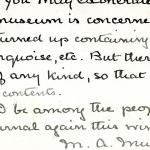 you may exonerate
museum is concerne
turned up containing
rquoise, etc. But ther
f any kind, so that
contents.
d be among the peop
urnal again this wi
M. A. Mu